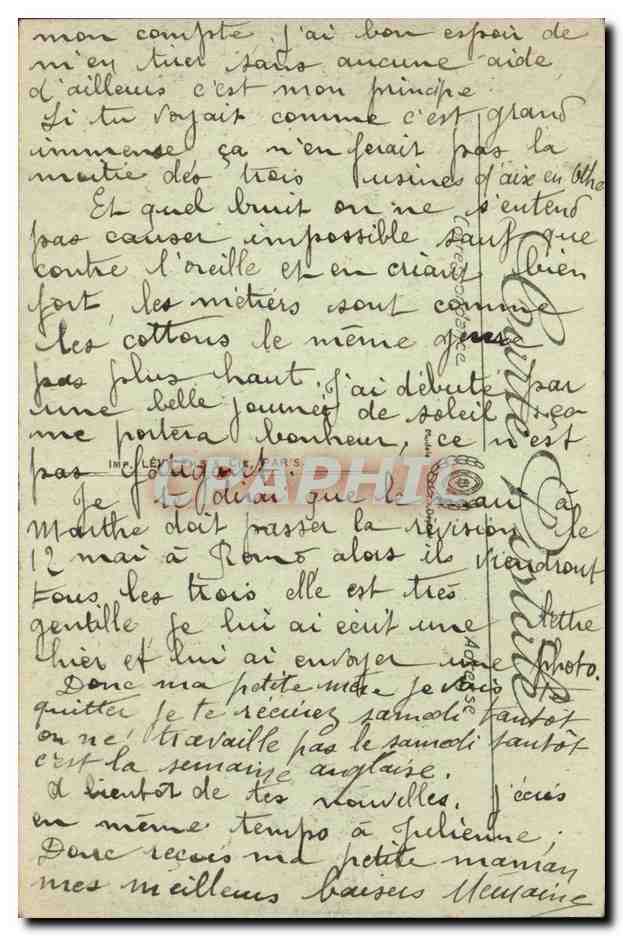 mon compte. j'ai bon espoir de
m'en tirer sans aucune aide
d'ailleurs c'est mon principe.
Si tu voyait comme c'est grand
immense ça n'en ferait pas la
moitie des trois usines d'aix en Othe
Et quel bruit on ne s'entend
pas causer impossible sauf que
contre l'oreille et en criant bien
fort, les métiers sont comme
les cottons le même genre
pas plus haut. j'ai débuté par
une belle journée de soleil ça
me portera bonheur, ce n'est
pas fatigant.
Je te dirai que le à
Marthe doit passer la révision le
12 mai à alors ils viendront
tous les trois elle est très
gentille, je lui ai écrit une lettre
hier et lui ai envoyer une photo.
Donc ma petite mère je vais te
quitter je te samedi tantôt
on ne travaille pas le samedi tantôt
c'est la semaine anglaise.
A bientôt de tes nouvelles. j'écris
en même temps à Julienne.
Donc reçois ma petite maman
mes meilleurs baisers
Carte Postale
Correspondance
Adresse
IMP. LÉVY PARIS
CPAPHIL